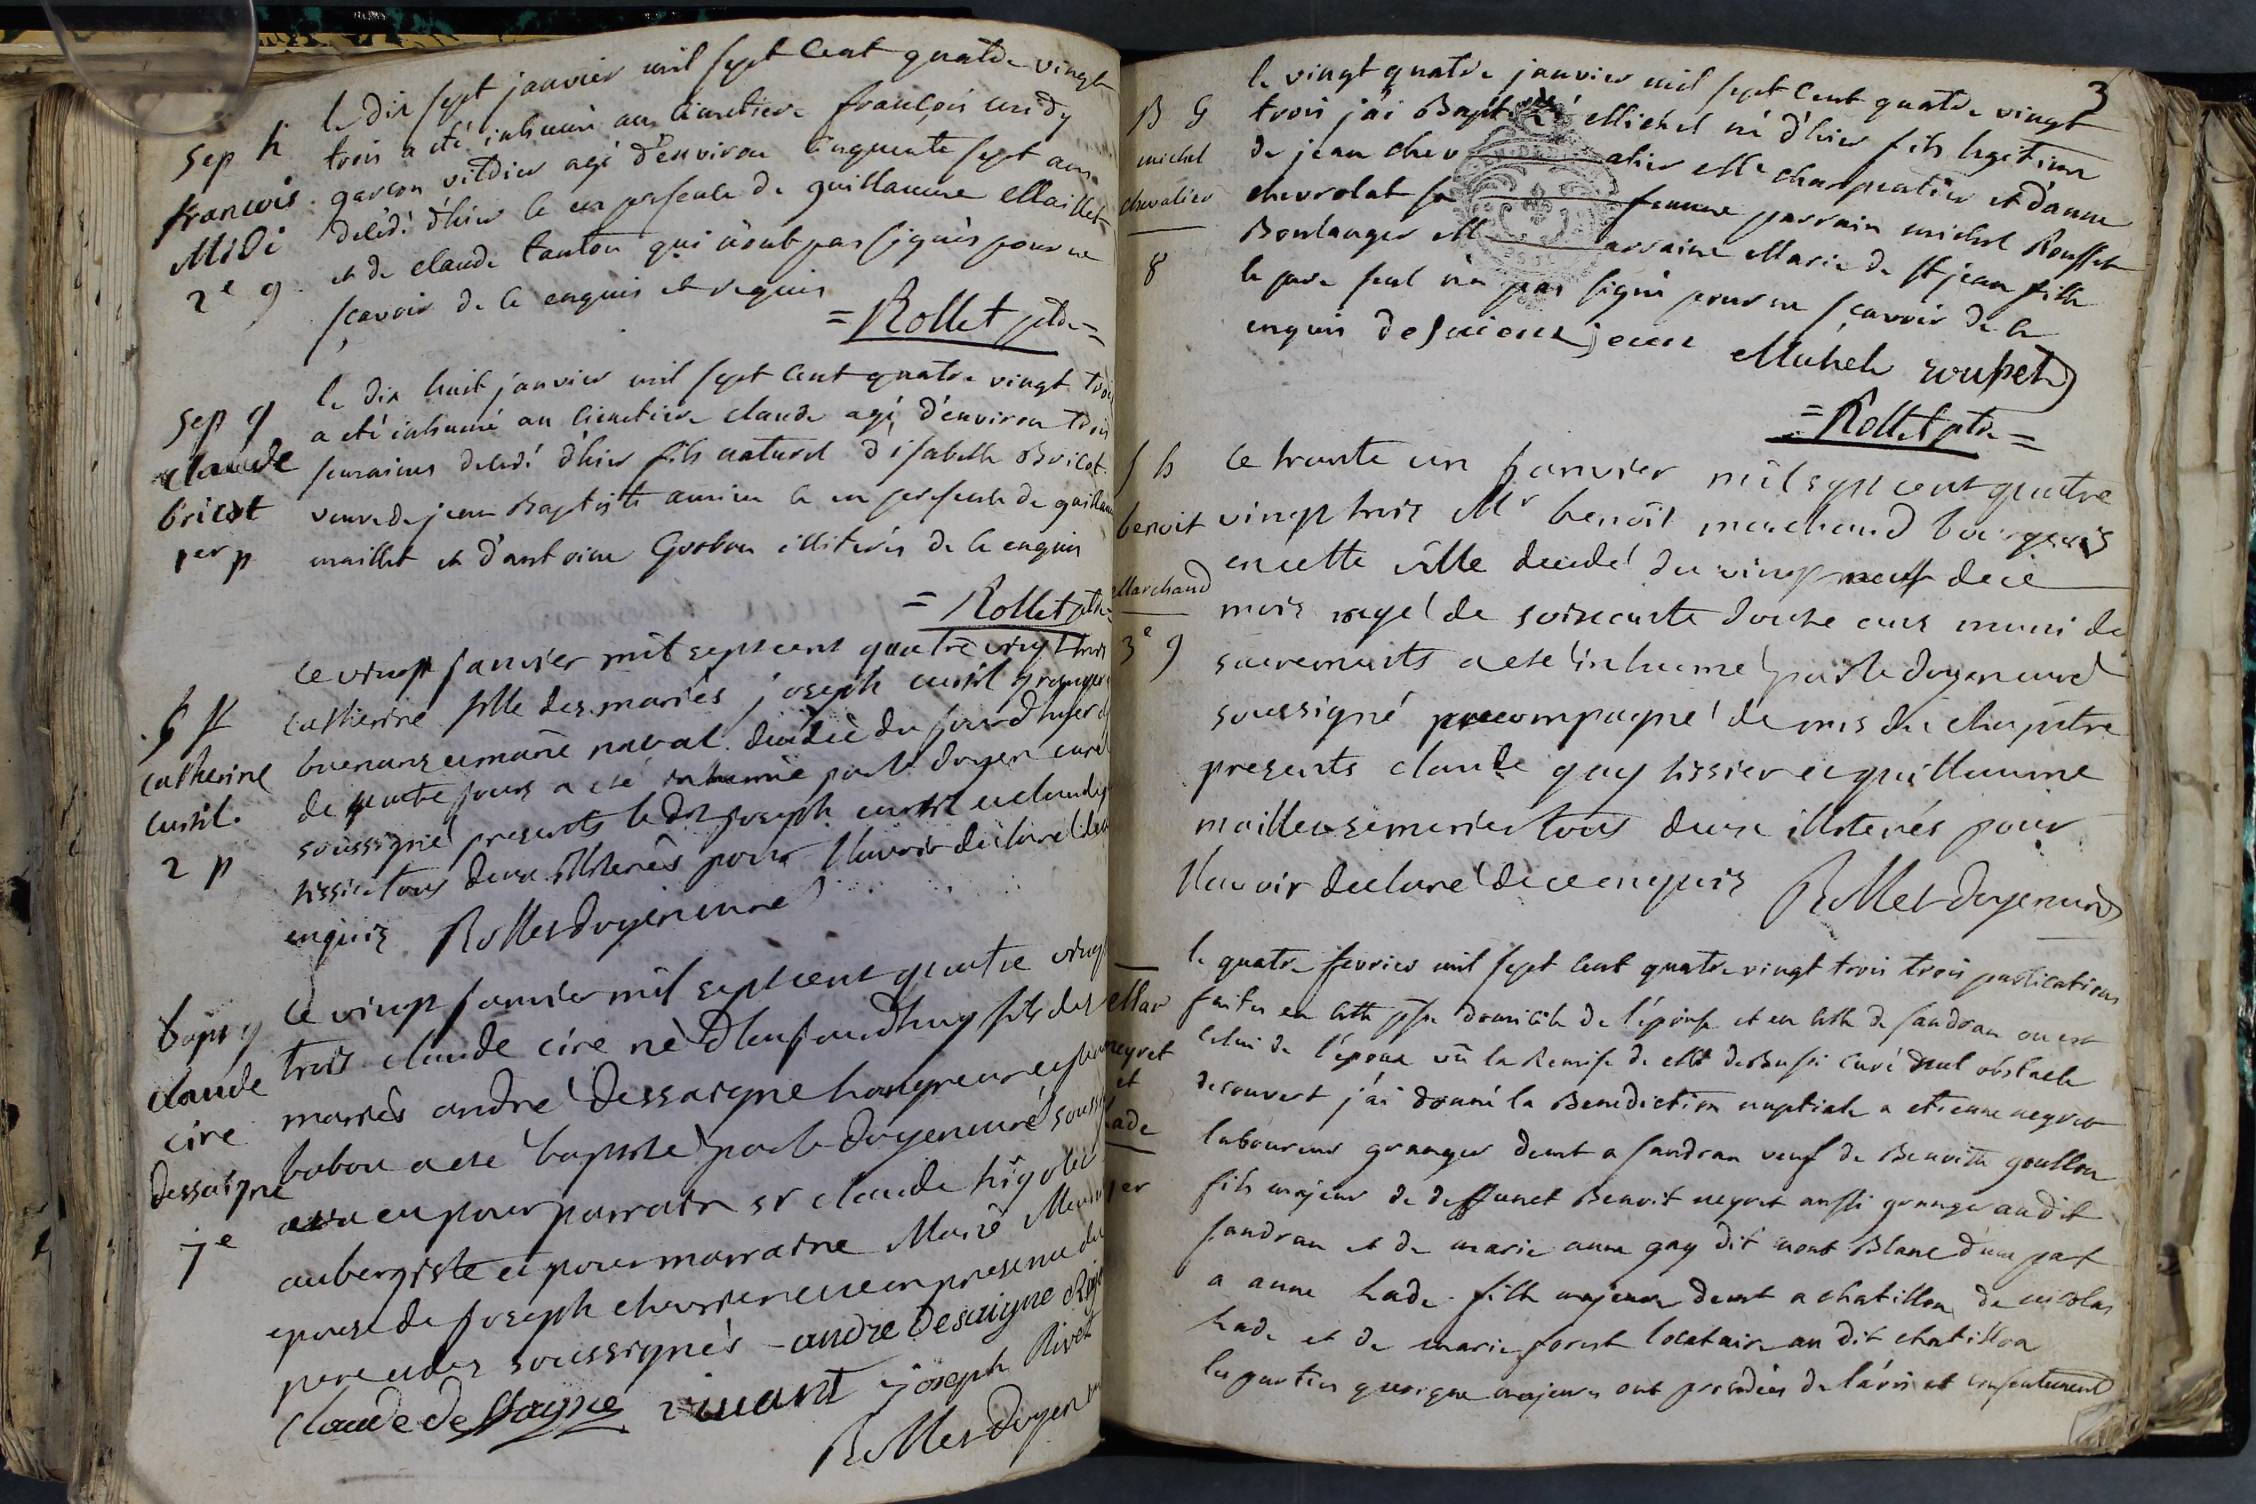 le dix sept janvier mil sept Cent quatre vingt
trois a été inhumé au cimetiere françois midy
garçon vitrier agé d'environ cinquante sept ans
délédé d'hier le en presence de guillaume Maillet
et de claude tanton qui n'ont pas signés pour ne
sçavoir de ce enquis et requis
= Rollet ptre =
sep h
francois
Midi
2e g
le dix huit janvier mil sept Cent quatre vingt trois
a été inhumé au cimetiere claude agé d'environ trois
semaines deledé d'hier fils naturel d'isabelle Bricot
veuve de jean Baptiste le en presence de guillaume
maillet et d'antoine illiterés de ce enquis
= Rollet ptre
sep g
claude
bricot
1er p
le vingt janvier mil sept cent quatre vingt trois
catherine fille des mariés joseph granger
décédée du jour d'hyer
de quatre jours a eté inhumée par le doyen curé
soussigné presents le dit joseph et claude
tissier tous deux illiterés pour l'avoir déclaré de ce
enquis Rollet doyen curé
catherine
2 p
le vingt janvier mil sept cent quatre vingt
trois claude cire né d'aujourdhuy fils des
mariés andré dessaigne et
bobon a eté baptisé par le doyen curé
a eu pour parrain sr claude
aubergiste et pour marraine Marie
epouse de joseph en presence du
pere et des soussignés - andre Desaigne
Claude dessaigne vivant joseph Rivet
Rollet doyen
bapt g
claude
cire
dessaigne
7e
3
le vingt quatre janvier mil sept Cent quatre vingt
trois j'ai Baptisé Michel né d'hier fils legitime
de jean chev alier Me charpentier et d'anne
chevrolat sa femme parrain michel Rousset
Boulanger M arraine Marie de st jean fille
le pere seul n'a pas signé pour ne sçavoir de ce
enquis
Michel roupet
= Rollet ptre =
B G
michel
chevalier
8
le trante un janvier mil sept cent quatre
vingt trois Mr benoit marchand bourgeois
en cette ville decedé du vingt neuf de ce
mois agé de soixante douze ans muni de
sacrements a eté inhumé par le doyen curé
soussigné accompagné de mrs du chapitre
presents claude gay tissier et guillaume
tous deux illiterés pour
l'avoir declaré de ce enquis Rollet doyen curé
s h
benoit
Marchand
3e g
le quatre fevrier mil sept Cent quatre vingt trois trois publications
faites en cette psse domicile de l'épouse et en celle de sandran ou est
celui de l'époux vû la Remise de Mr curé nul obstacle
decouvert j'ai donné la Benediction nuptiale a etienne negret
laboureur granger demt a sandran veuf de Benoitte goullon
fils majeur de deffunct Benoit negret aussi granger au dit
sandran et de marie anne gay dit mont Blanc d'une part
a anne hade fille majeure demt a chatillon de nicolas
hade et de marie forest locataire au dit chatillon
les parties quoique majeures ont procédées de l'avis et consentement
Mar
negret
et
hade
1er